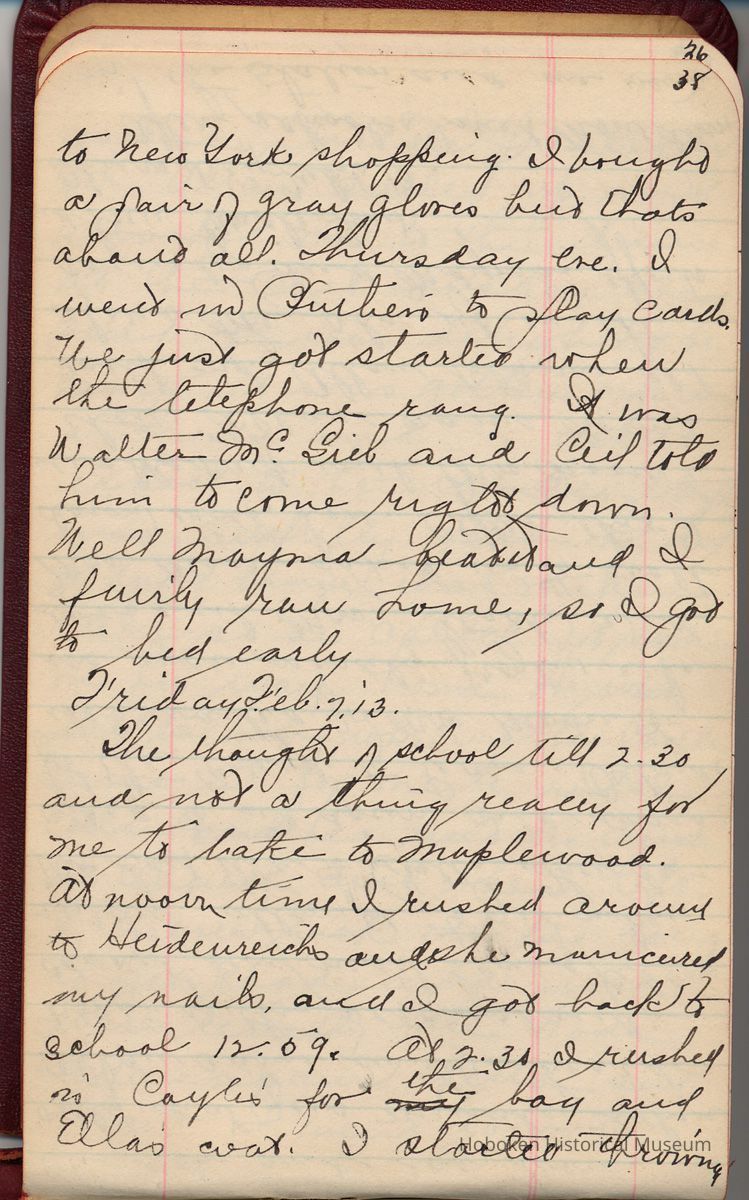 26
38
to New York shopping. I bought
a pair of gray gloves but thats
about all. Thursday eve. I
went in to play cards.
We just got started when
the telephone rang. It was
Walter Mc Gieb and Ceil told
him to come right down.
Well Mayma beat it and I
fairly ran home, so I got
to bed early
Friday Feb. 7, 13.
The thought of school till 2-30
and not a thing ready for
me to take to Maplewood.
At noon time I rushed around
to Heidenreichs and she manicured
my nails, and I got back to
school 12.59. At 2.30 I rushed
in for my the bag and
Ella's coat. I started throwing
Hoboken Historical Museum